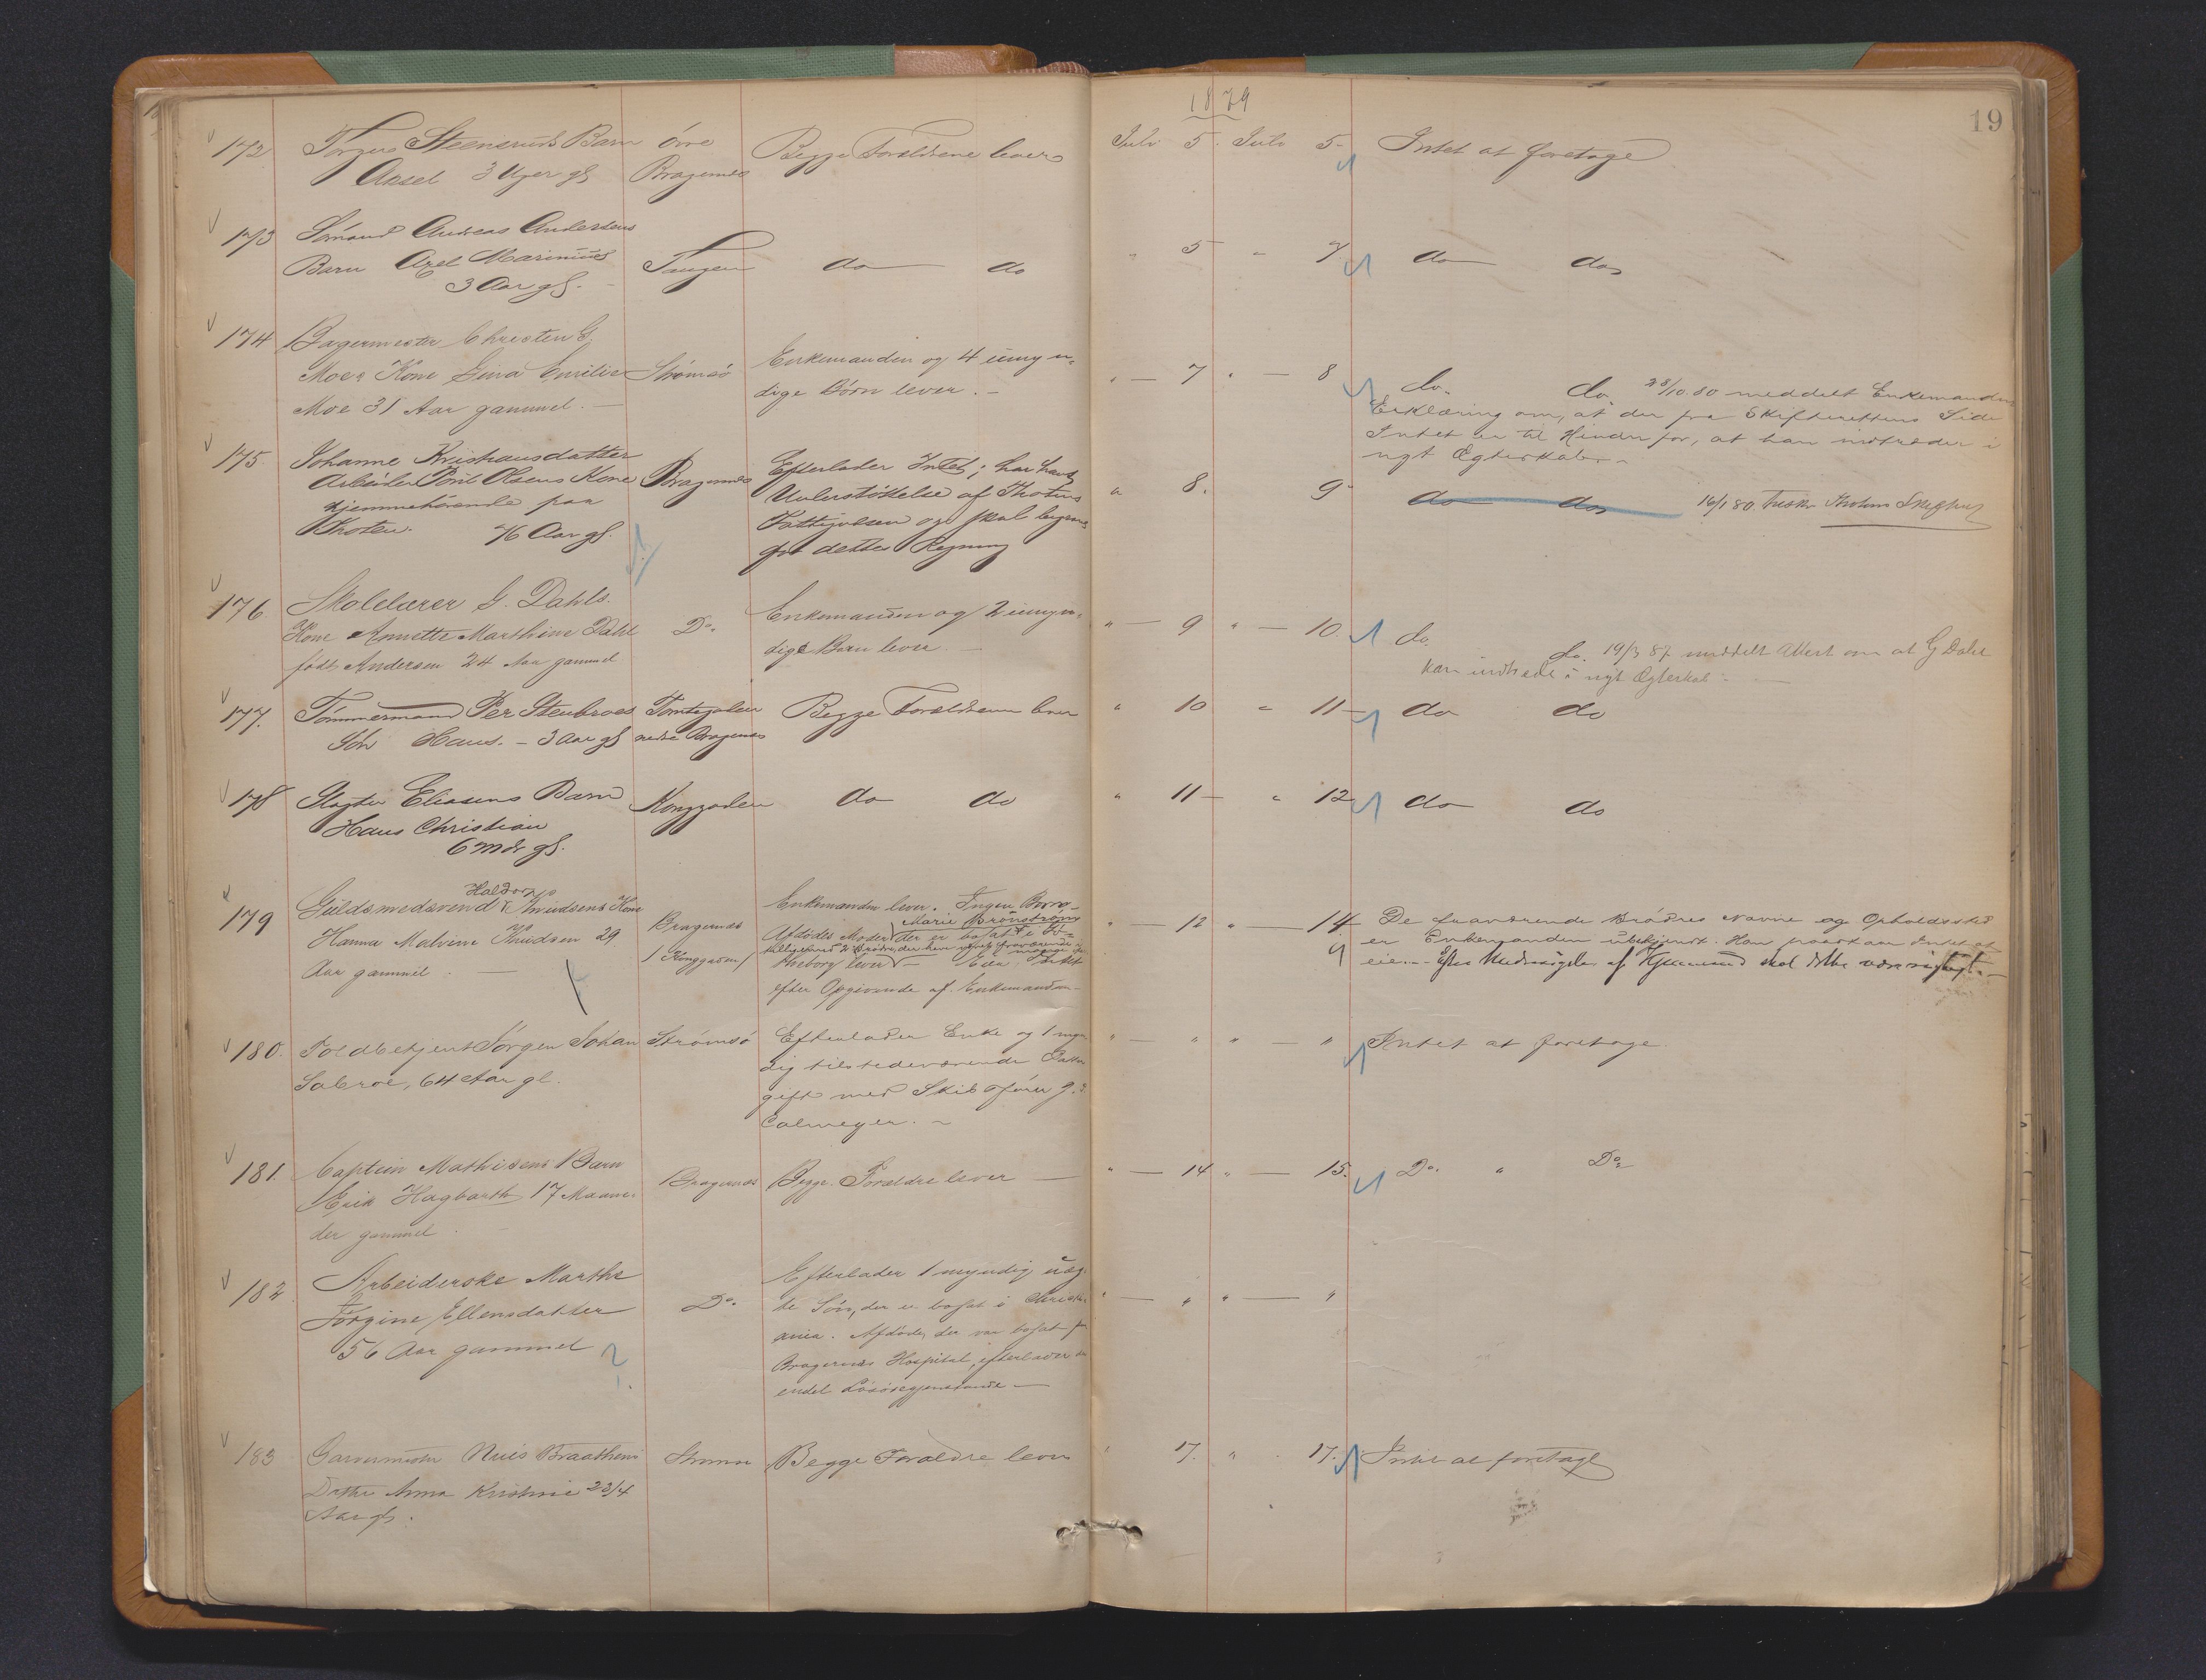 1879
19
172 Torgers Steensruds Barn övre Begge Forældrene lever Juli 5. Juli 5. Intet at foretage
Axel 3 Uger gl Bragernes
173 Sömand Andreas Andersens
Barn Axel Marinius Tangen do do " 5 " 7 do do
3 Aar gl.
174 Bagermester Christen G.
Moes Kone Gina Emilie Strømsö Enkemanden og 4 umyn-
Moe 31 Aar gammel. dige Børn lever. " 7 " 8 do. do. 28/10 80 meddelt Enkemanden
Erklæring om, at der fra Skifterettens Side
Intet er til Hinder for, at han indtræder i
nyt Ægteskab.
175. Johanne Kristiansdatter Bragernes Efterlader Intet; har havt
Arbeider Olsens Kone Understøttelse af Thotens
hjemmehörende paa Fattigvæsen og skal begraves
Thoten. 76 Aar gl. for dettes Regning
" 8. 9 do do 16/1 80
176. Skolelærer G. Dahls.
Kone Annette Marthine Dahl Do. Enkemanden og 2 umyn-
født Andersen 24 Aar gammel dige Børn lever
" 9 " 10. do. do. 19/3 87 meddelt Attest om at G Dahl
kan indtræde i nyt Ægteskab.
177. Tömmermand Per Stenbroes Tomtegaden Begge Forældrene lever " 10 " 11 do do
Sön Hans. - 3 Aar gl nedre Bragernes
178 Slagter Eliasens Barn Konggaden do do " 11 " 12 do do
Hans Christian
6 Mdr gl.
179 Guldsmedsvend Haldor Knudsens Kone Bragernes
Hanna Malvine Knudsen 29 /Konggaden/
Aar gammel.
Enkemanden lever. Ingen Børn.
Afdødes Moder Marie Brönström der er bosat i
lever Eier Intet
efter Opgivende af Enkemanden
" 12 " 14 De fraværende Brödres Navne og Opholdssted
er Enkemanden ubekjendt. Han
eie.
180. Toldbetjent Jörgen Johan Strømsö Efterlader Enke og 1 myn
Sabroe, 64 Aar gl. dig tilstedeværende Datter
gift med Skibsfører
Calmeyer.
" " " " Intet at foretage
181. Captein Mathisens Barn Bragernes Begge Forældre lever " 14 " 15. Do. " Do.
Erik Hagbarth 17 Maane-
der gammel
182 Arbeiderske Marthe Do. Efterlader 1 myndig uæg-
Jörgine Ellensdatter te Sön, der er bosat i Christi-
56 Aar gammel ania. Afdöde, der var bosat paa
?
Bragernes Hospital, efterlader
endel Lösöregjenstande
" " " "
183 Garvermester Nils Braathens Strømsö Begge Forældre lever " 17. " 17. Intet at foretage
Datter Anna Kristine 2 3/4
Aar gl.